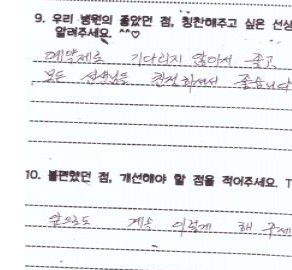 9. 우리 병원의 좋았던 점, 칭찬해주고 싶은 선생
알려주세요. ^^♡
예약제로 기다리지 않아서 좋고
모든 선생님들 친절하셔서 좋습니다
10. 불편했던 점, 개선해야 할 점을 적어주세요. T
앞으로도 계속 이렇게 해 주세